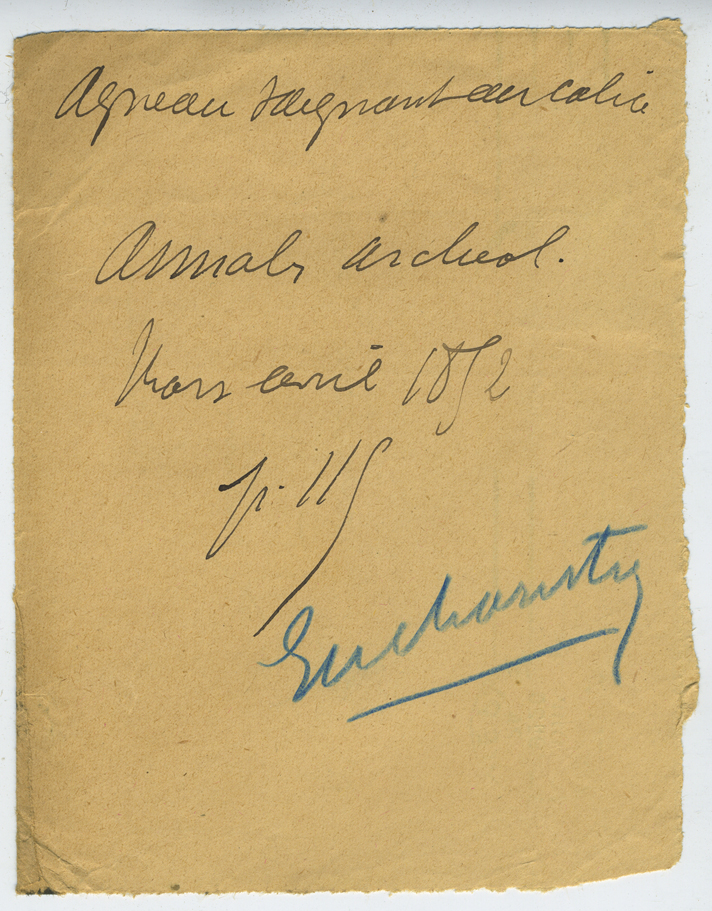 Agneau saignant au calice
Annales archeol.
Mars avril 1852
p. 115
Eucharistie